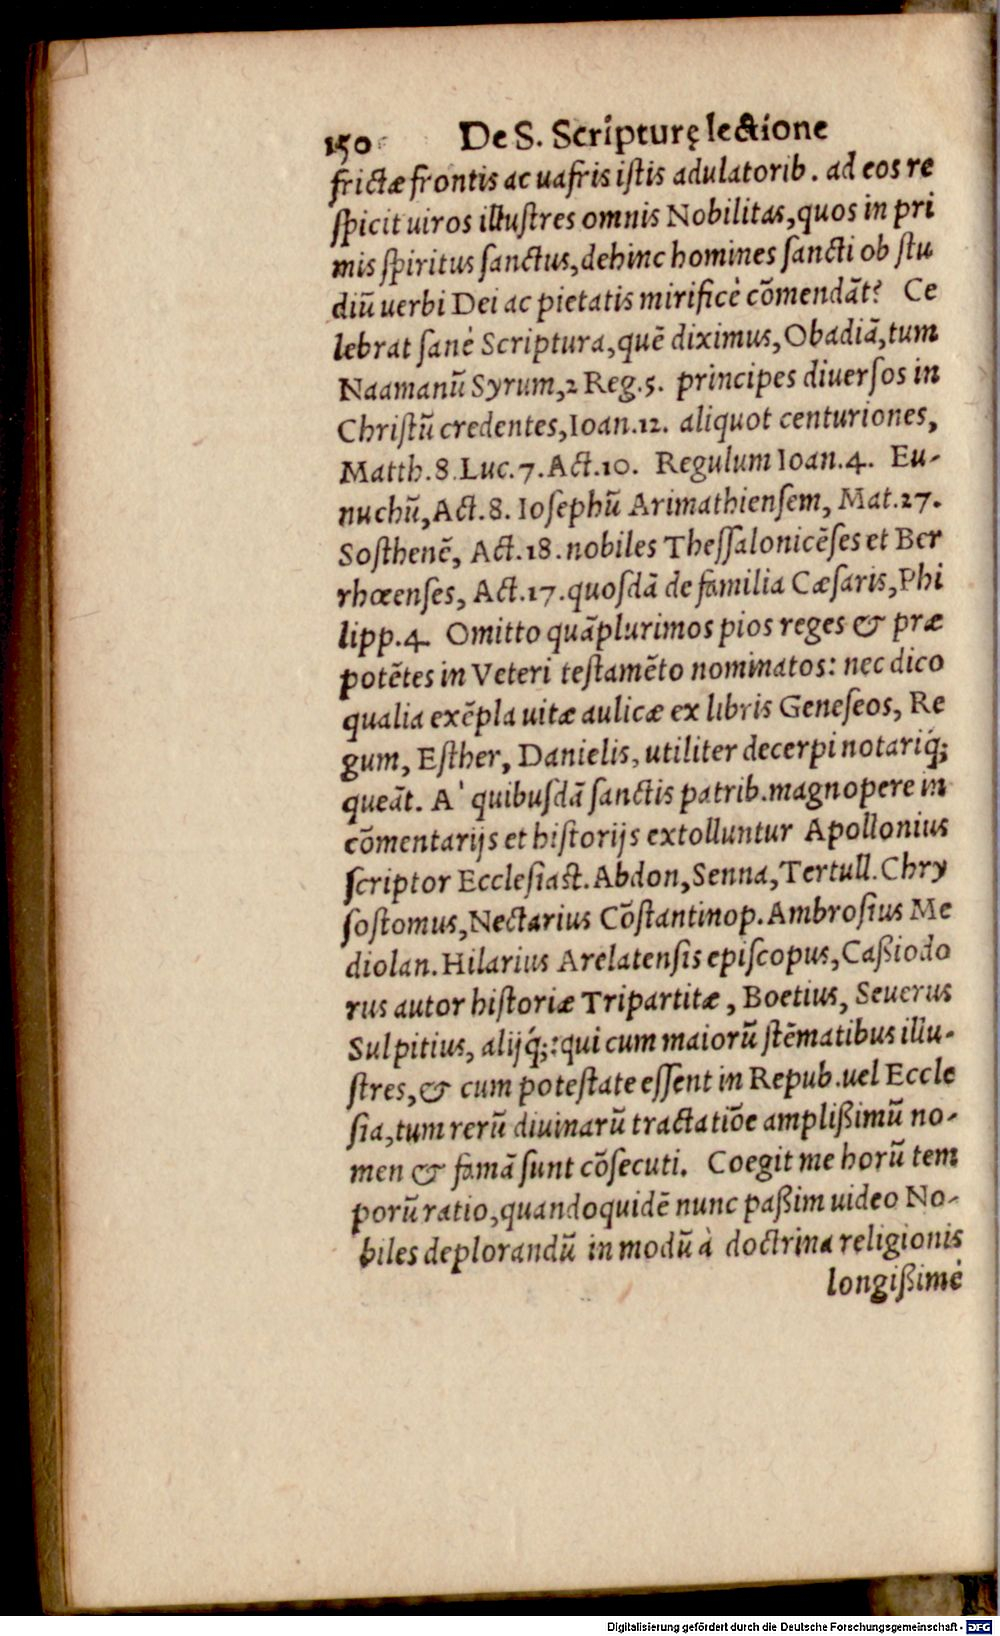 150 De S. Scripturę lectione
frictæ frontis ac uafris iſtis adulatorib. ad eos re
ſpicit uiros illuſtres omnis Nobilitas, quos in pri
mis ſpiritus ſanctus, dehinc homines ſancti ob ſtu
diū uerbi Dei ac pietatis mirificè cōmendāt? Ce
lebrat ſanè Scriptura, quē diximus, Obadiā, tum
Naamanū Syrum, 2 Reg.5. principes diuerſos in
Chriſtū credentes, Ioan.12. aliquot centuriones,
Matth.8. Luc.7. Act.10. Regulum Ioan.4. Eu-
nuchū, Act.8. Ioſephū Arimathienſem, Mat.27.
Soſthenē, Act.18. nobiles Theſſalonicēſes et Ber
rhœenſes, Act.17. quoſdā de familia Cæſaris, Phi
lipp.4 Omitto quāplurimos pios reges & præ
potētes in Veteri teſtamēto nominatos: nec dico
qualia exēpla uitæ aulicæ ex libris Geneſeos, Re
gum, Eſther, Danielis, utiliter decerpi notariq́;
queāt. A' quibuſdā ſanctis patrib. magnopere in
cōmentarijs et hiſtorijs extolluntur Apollonius
ſcriptor Eccleſiaſt. Abdon, Senna, Tertull. Chry
ſoſtomus, Nectarius Cōſtantinop. Ambroſius Me
diolan. Hilarius Arelatenſis epiſcopus, Caßiodo
rus autor hiſtoriæ Tripartitæ, Boetius, Seuerus
Sulpitius, alijq́;: qui cum maiorū ſtēmatibus illu-
ſtres, & cum poteſtate eſſent in Repub. uel Eccle
ſia, tum rerū diuinarū tractatiōe amplißimū no-
men & famā ſunt cōſecuti. Coegit me horū tem
porū ratio, quandoquidē nunc paßim uideo No-
biles deplorandū in modū à doctrina religionis
longißimè
Digitalisierung gefördert durch die Deutsche Forschungsgemeinschaft - DFG